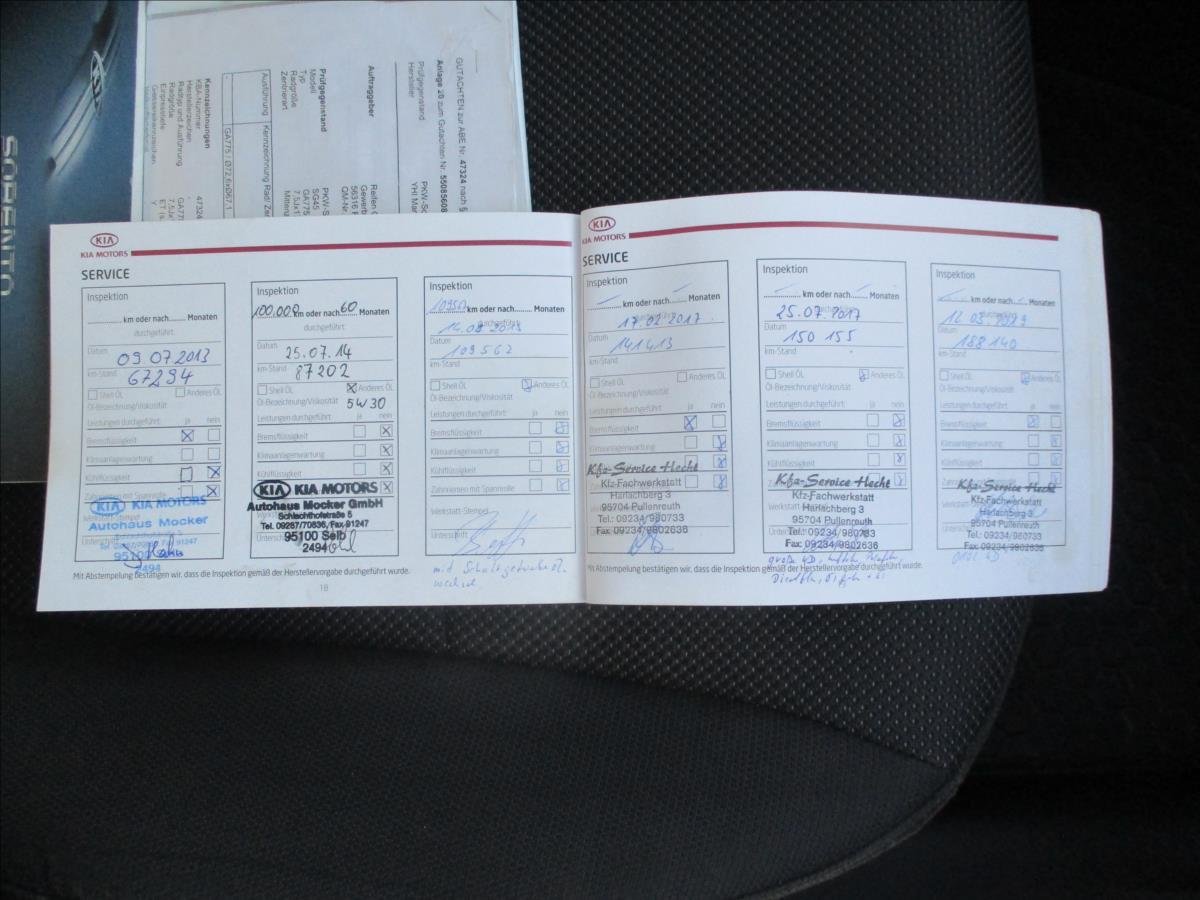 SORENTO
KIA
GUTACHTEN zur ABE Nr. 47324 nach §
Anlage 20 zum Gutachten Nr. 55085608
Prüfgegenstand PKW-So
Hersteller YHI Mar
Auftraggeber
Prüfgegenstand
Modell SG45
Typ GA775
Radgröße 7,5Jx1
Zentrierart
Ausführung Kennzeichnung Rad/ Ze
GA775 / Ø72,6xØ67,1
Kennzeichnungen
KBA-Nummer 47324
Herstellerzeichen
Radtyp und Ausführung
Radgröße
Einpresstiefe
KIA
KIA MOTORS
SERVICE
Inspektion
km oder nach Monaten
durchgeführt:
Datum 09 07 2013
km-Stand 67294
Shell ÖL Anderes ÖL
Öl-Bezeichnung/Viskosität
Leistungen durchgeführt: ja nein
Bremsflüssigkeit
Klimaanlagenwartung
Kühlflüssigkeit
Zahnriemen mit Spannrolle
KIA KIA MOTORS
Autohaus Mocker
Inspektion
100.000 km oder nach 60 Monaten
durchgeführt:
Datum 25.07.14
km-Stand 87202
Shell ÖL Anderes ÖL
Öl-Bezeichnung/Viskosität 5W30
Leistungen durchgeführt: ja nein
Bremsflüssigkeit
Klimaanlagenwartung
Kühlflüssigkeit
KIA KIA MOTORS
Autohaus Mocker GmbH
Schlachthofstraße 5
Tel. 09287/70836, Fax 91247
95100 Selb
2494
Inspektion
km oder nach Monaten
durchgeführt:
Datum
109562
km-Stand
Shell ÖL Anderes ÖL
Öl-Bezeichnung/Viskosität
Leistungen durchgeführt: ja nein
Bremsflüssigkeit
Klimaanlagenwartung
Kühlflüssigkeit
Zahnriemen mit Spannrolle
Werkstatt-Stempel
Unterschrift
Mit Abstempelung bestätigen wir, dass die Inspektion gemäß der Herstellervorgabe durchgeführt wurde.
18
KIA
KIA MOTORS
SERVICE
Inspektion
km oder nach Monaten
17.02.2017
Datum 141413
km-Stand
Shell ÖL Anderes ÖL
Öl-Bezeichnung/Viskosität
Leistungen durchgeführt: ja nein
Bremsflüssigkeit
Klimaanlagenwartung
Kfz-Service Hecht
Kfz-Fachwerkstatt
Harlachberg 3
95704 Pullenreuth
Tel.: 09234/980733
Fax: 09234/9802636
Inspektion
km oder nach Monaten
25.07.2017
Datum 150 155
km-Stand
Shell ÖL Anderes ÖL
Öl-Bezeichnung/Viskosität
Leistungen durchgeführt: ja nein
Bremsflüssigkeit
Klimaanlagenwartung
Kühlflüssigkeit
Kfz-Service Hecht
Kfz-Fachwerkstatt
Harlachberg 3
95704 Pullenreuth
Tel.: 09234/980733
Fax: 09234/9802636
Inspektion
km oder nach Monaten
Datum 188 140
km-Stand
Shell ÖL Anderes ÖL
Öl-Bezeichnung/Viskosität
Leistungen durchgeführt: ja nein
Bremsflüssigkeit
Klimaanlagenwartung
Kühlflüssigkeit
Kfz-Service Hecht
Kfz-Fachwerkstatt
Harlachberg 3
95704 Pullenreuth
Tel.: 09234/980733
Fax: 09234/9802636
Mit Abstempelung bestätigen wir, dass die Inspektion gemäß der Herstellervorgabe durchgeführt wurde.